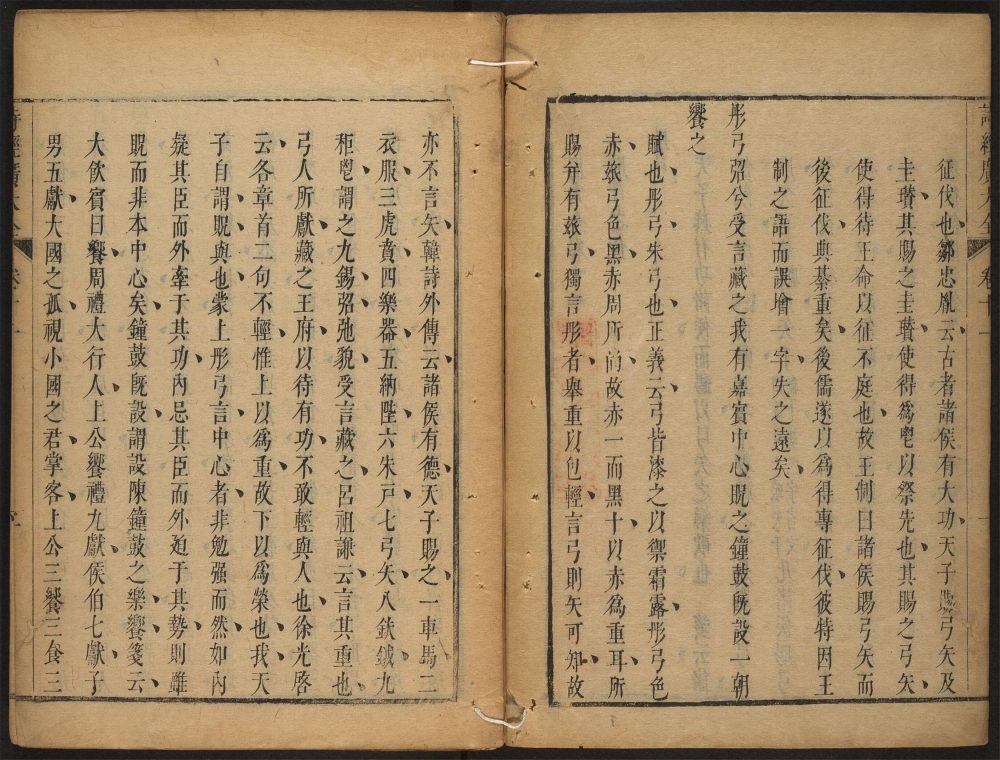 詩經廣大全
卷十一
征伐也鄒忠胤云古者諸侯有大功天子賜弓矢及
圭瓚其賜之圭瓚使得爲鬯以祭先也其賜之弓矢
使得待王命以征不庭也故王制曰諸侯賜弓矢而
後征伐典綦重矣後儒遂以爲得專征伐彼特因王
制之語而誤增一字失之遠矣
彤弓弨兮受言藏之我有嘉賓中心貺之鐘鼓旣設一朝
饗之
賦也彤弓朱弓也正義云弓皆漆之以禦霜露彤弓色
赤玈弓色黑赤周所尚故赤一而黑十以赤爲重耳所
賜并有玈弓獨言彤者舉重以包輕言弓則矢可知故
亦不言矢韓詩外傳云諸侯有德天子賜之一車馬二
衣服三虎賁四樂器五納陛六朱戸七弓矢八鈇鉞九
秬鬯謂之九錫弨弛貌受言藏之呂祖謙云言其重也
弓人所獻藏之王府以待有功不敢輕與人也徐光啓
云各章首二句不輕惟上以爲重故下以爲榮也我天
子自謂貺與也蒙上彤弓言中心者非勉强而然如內
疑其臣而外牽于其功內忌其臣而外廹于其勢則雖
貺而非本中心矣鐘鼓旣設謂設陳鐘鼓之樂饗箋云
大飲賓曰饗周禮大行人上公饗禮九獻侯伯七獻子
男五獻大國之孤視小國之君掌客上公三饗三食三
詩經廣大全
卷十一